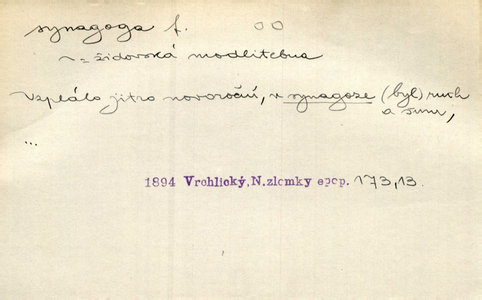 synagoga f. OO
~ = židovská modlitebna
Vzplálo jitro novoroční, v synagoze (byl) ruch
a šum,
...
1894 Vrchlický, N. zlomky epop. 173,13.